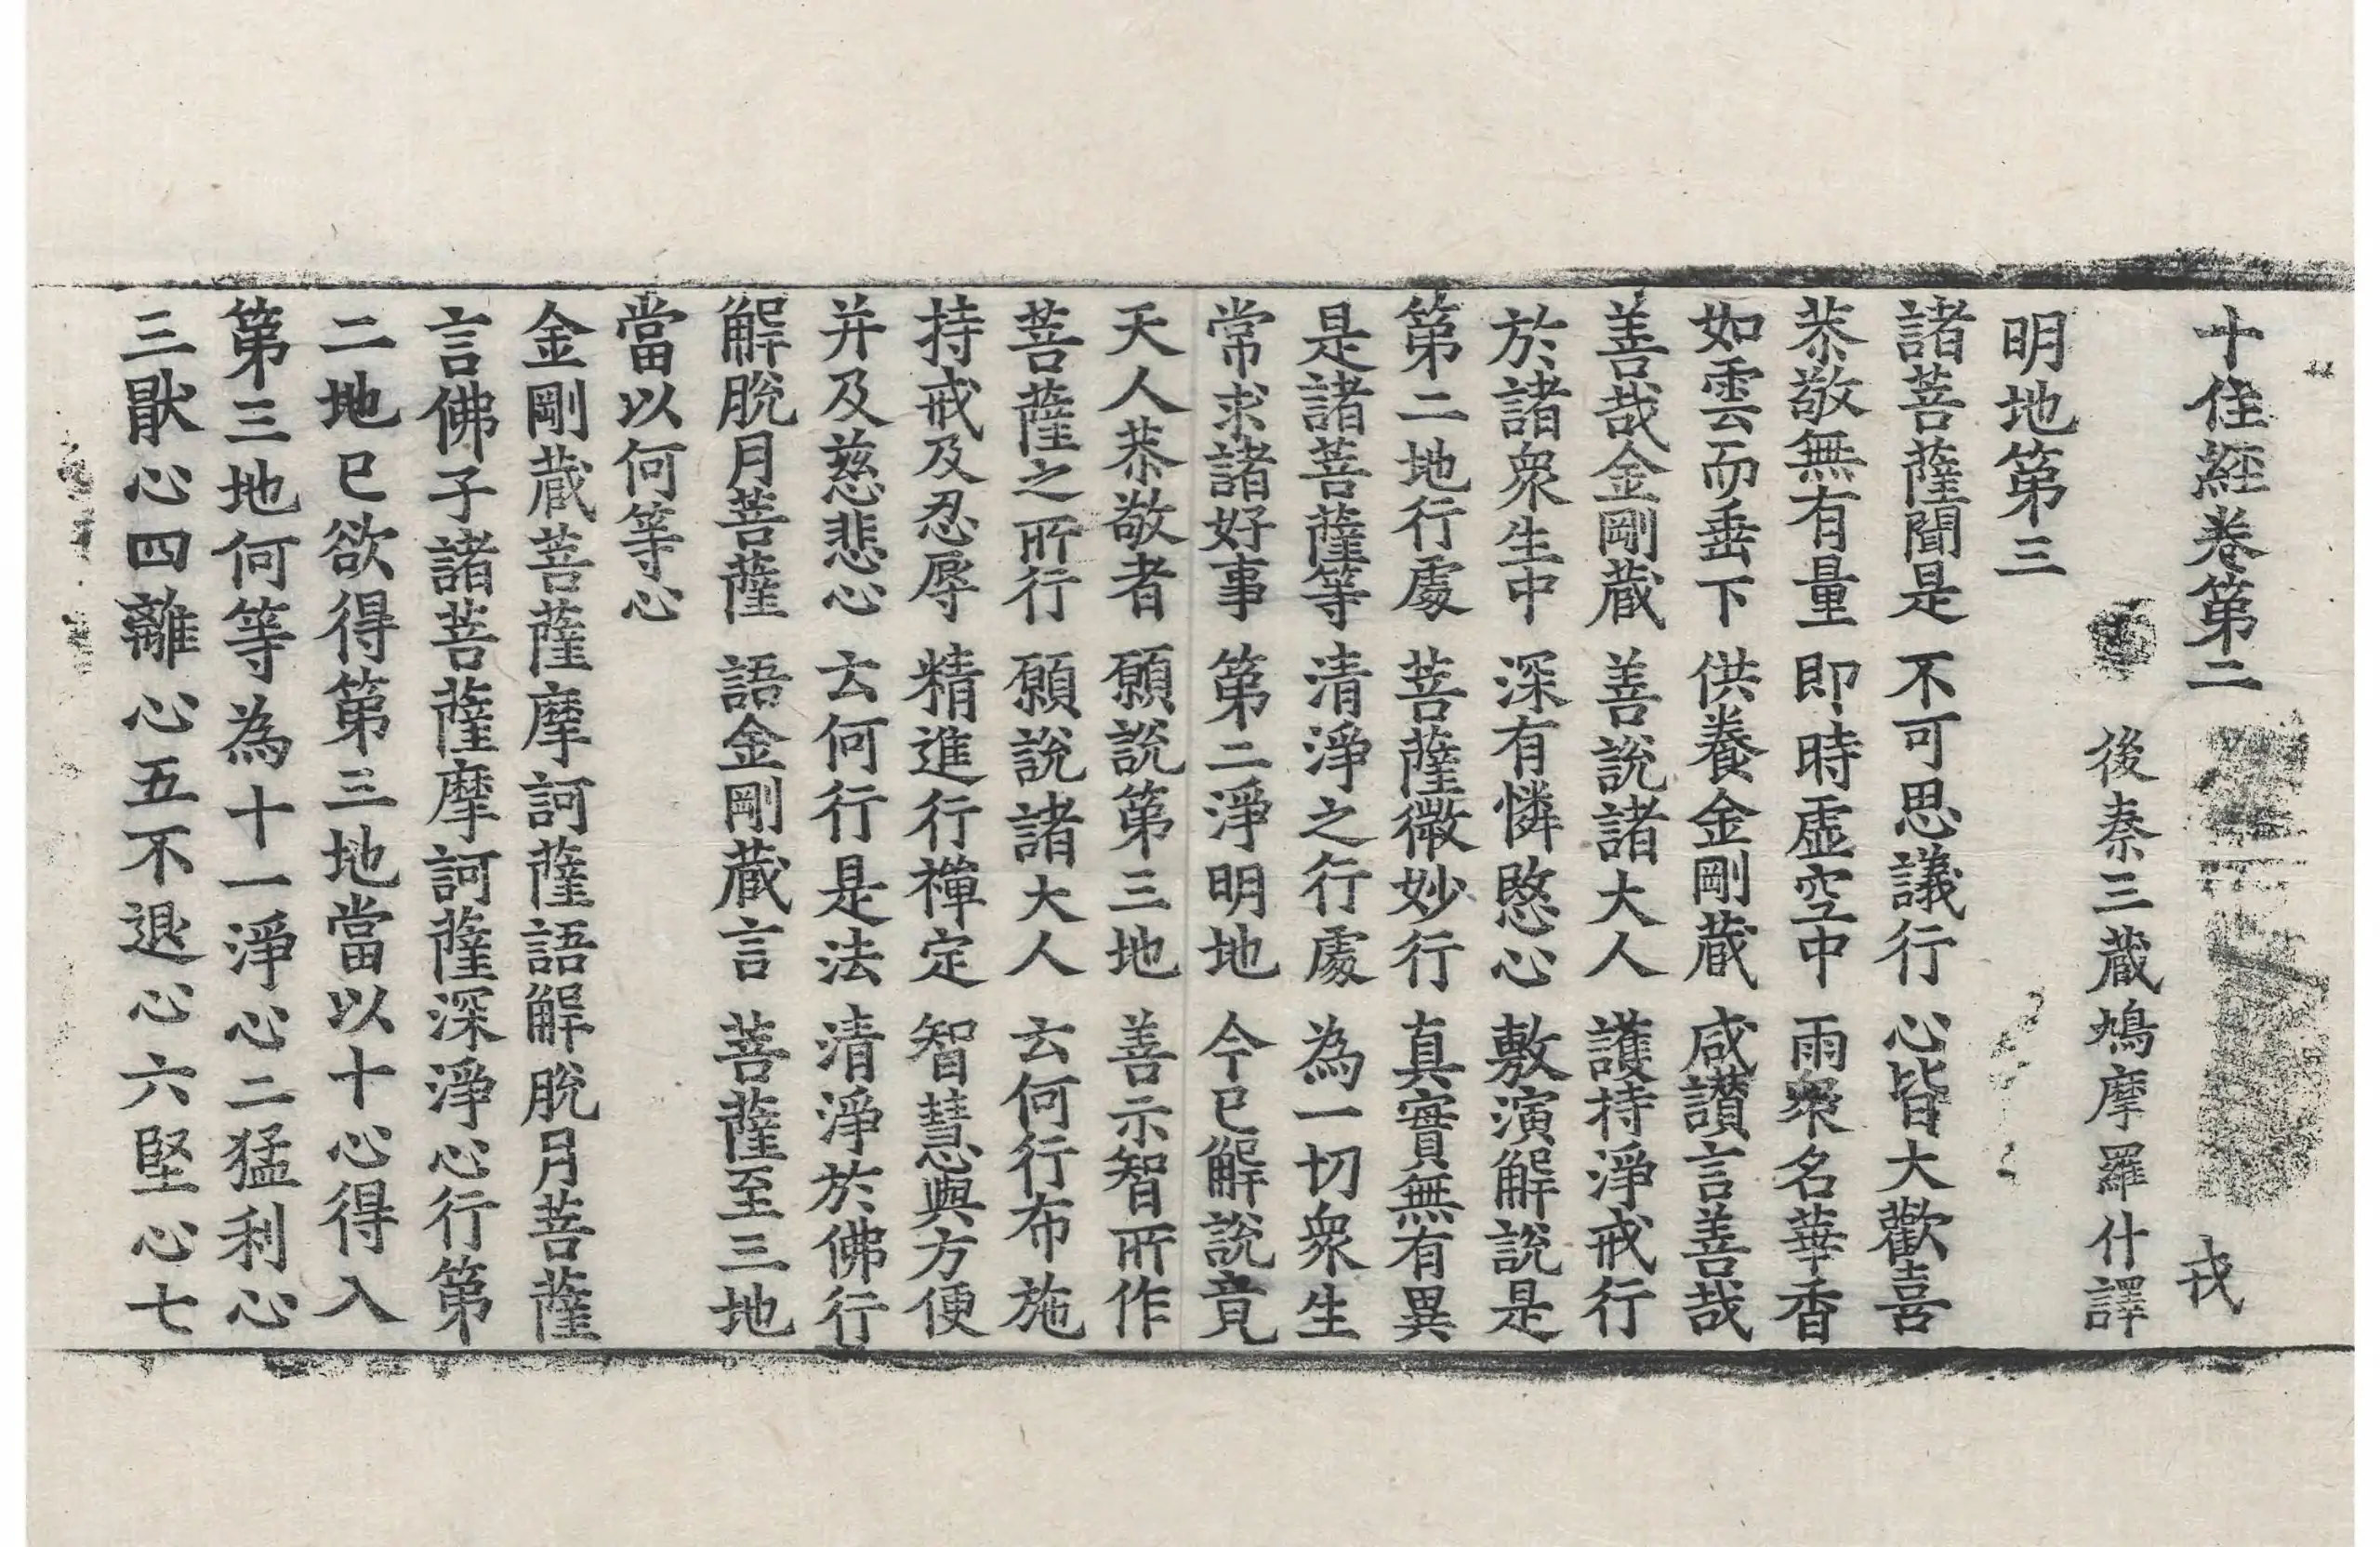 十住經卷第二 戎
後秦三藏鳩摩羅什譯
明地第三
諸菩薩聞是 不可思議行 心皆大歡喜
恭敬無有量 即時虛空中 雨衆名華香
如雲而垂下 供養金剛藏 咸讃言善哉
善哉金剛藏 善說諸大人 護持淨戒行
於諸衆生中 深有憐愍心 敷演解說是
第二地行處 菩薩微妙行 真實無有異
是諸菩薩等 清淨之行處 為一切衆生
常求諸好事 第二淨明地 今已解說竟
天人恭敬者 願說第三地 善示智所作
菩薩之所行 願說諸大人 云何行布施
持戒及忍辱 精進行禪定 智慧與方便
并及慈悲心 云何行是法 清淨於佛行
解脫月菩薩 語金剛藏言 菩薩至三地
當以何等心
金剛藏菩薩摩訶薩語解脫月菩薩
言佛子諸菩薩摩訶薩深淨心行第
二地已欲得第三地當以十心得入
第三地何等為十一淨心二猛利心
三猒心四離心五不退心六堅心七